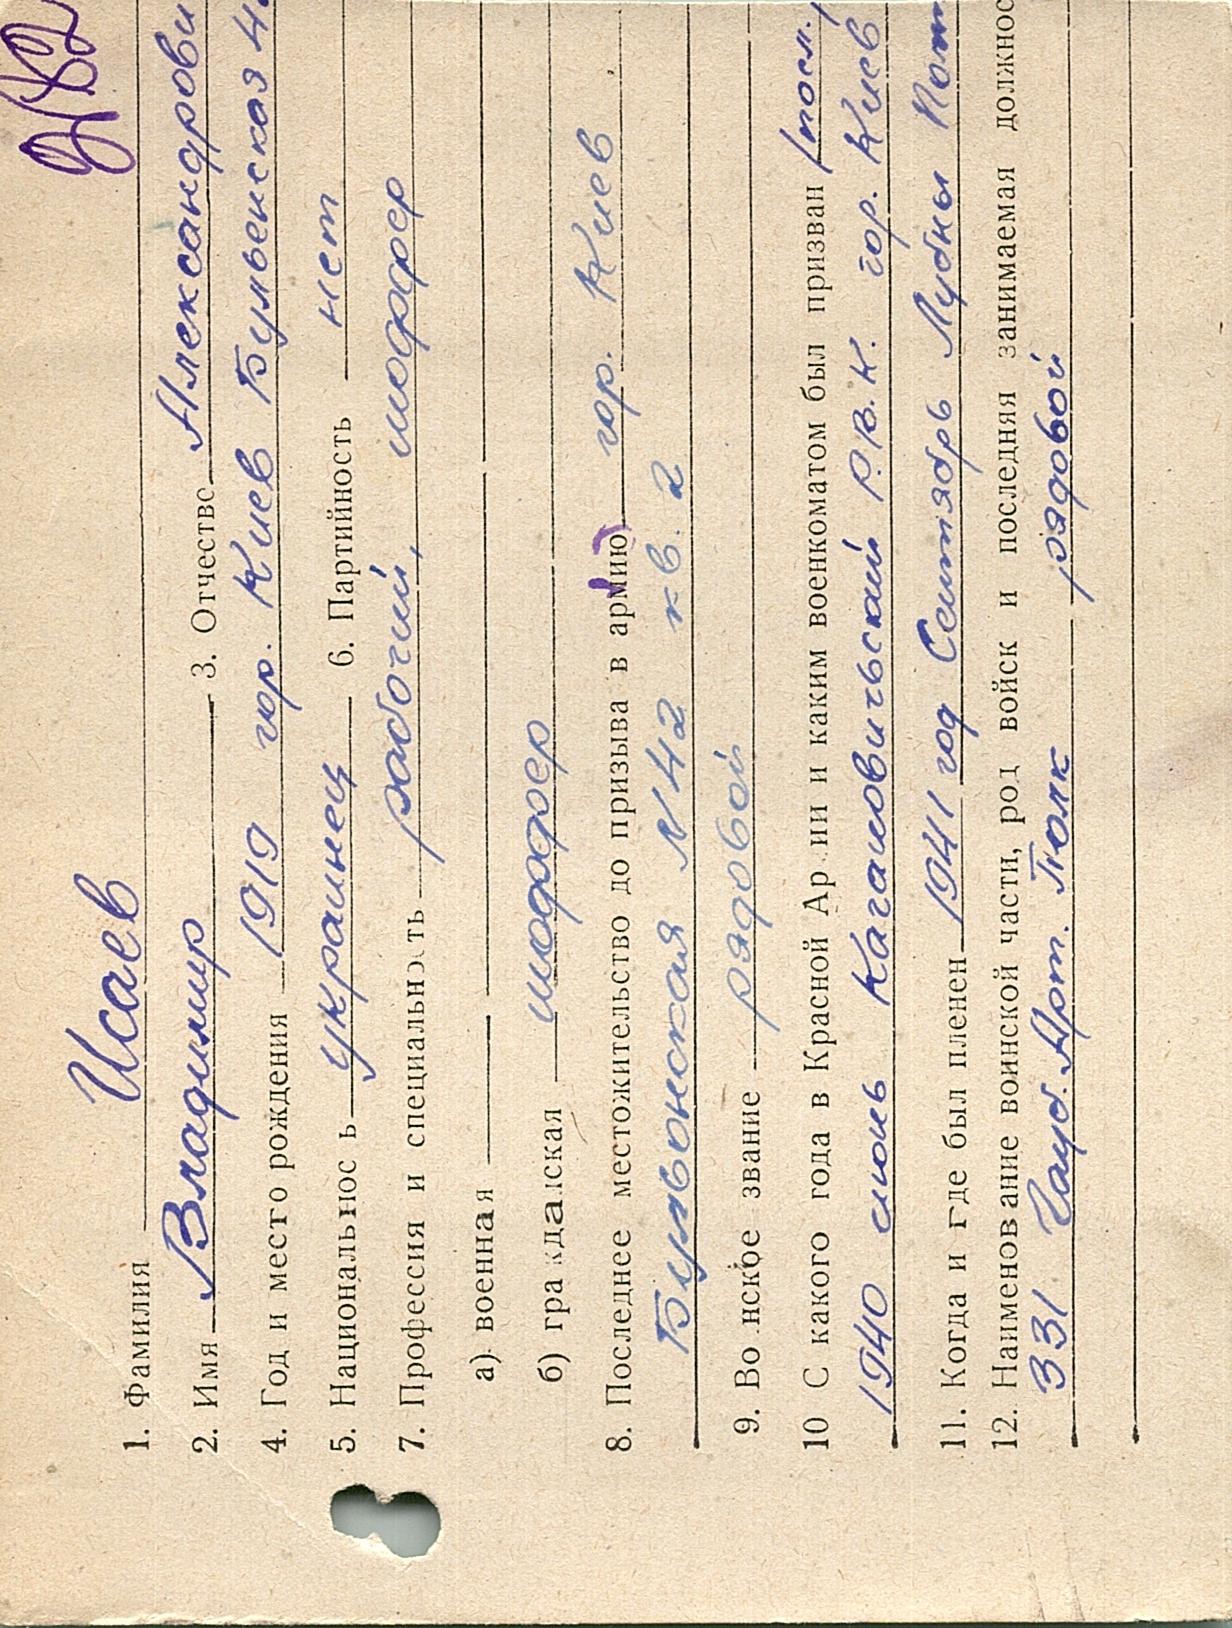 1. Фамилия Исаев
2. Имя Владимир 3. Отчество Александрови
4. Год и место рождения 1919 гор. Киев Бульенская 4
5. Национальнос ь украинец 6. Партийность нет
7. Профессия и специальн ть рабочий, шоффер
а) военная
б) гра кда ская шоффер
8. Последнее местожительство до призыва в армию) гор. Киев
Бульонская N 42 кв. 2
9. Во нское звание рядовой
10 С какого года в Красной Ар ии и каким военкоматом был призван
1940 июнь Кагановичьский Р.В.К. гор. Киев
11. Когда и где был пленен 1941 год Сентябрь Лубны Пол
12. Наименование воинской части, род войск и последняя занимаемая должнос
331 Гауб. Арт. Полк рядовой